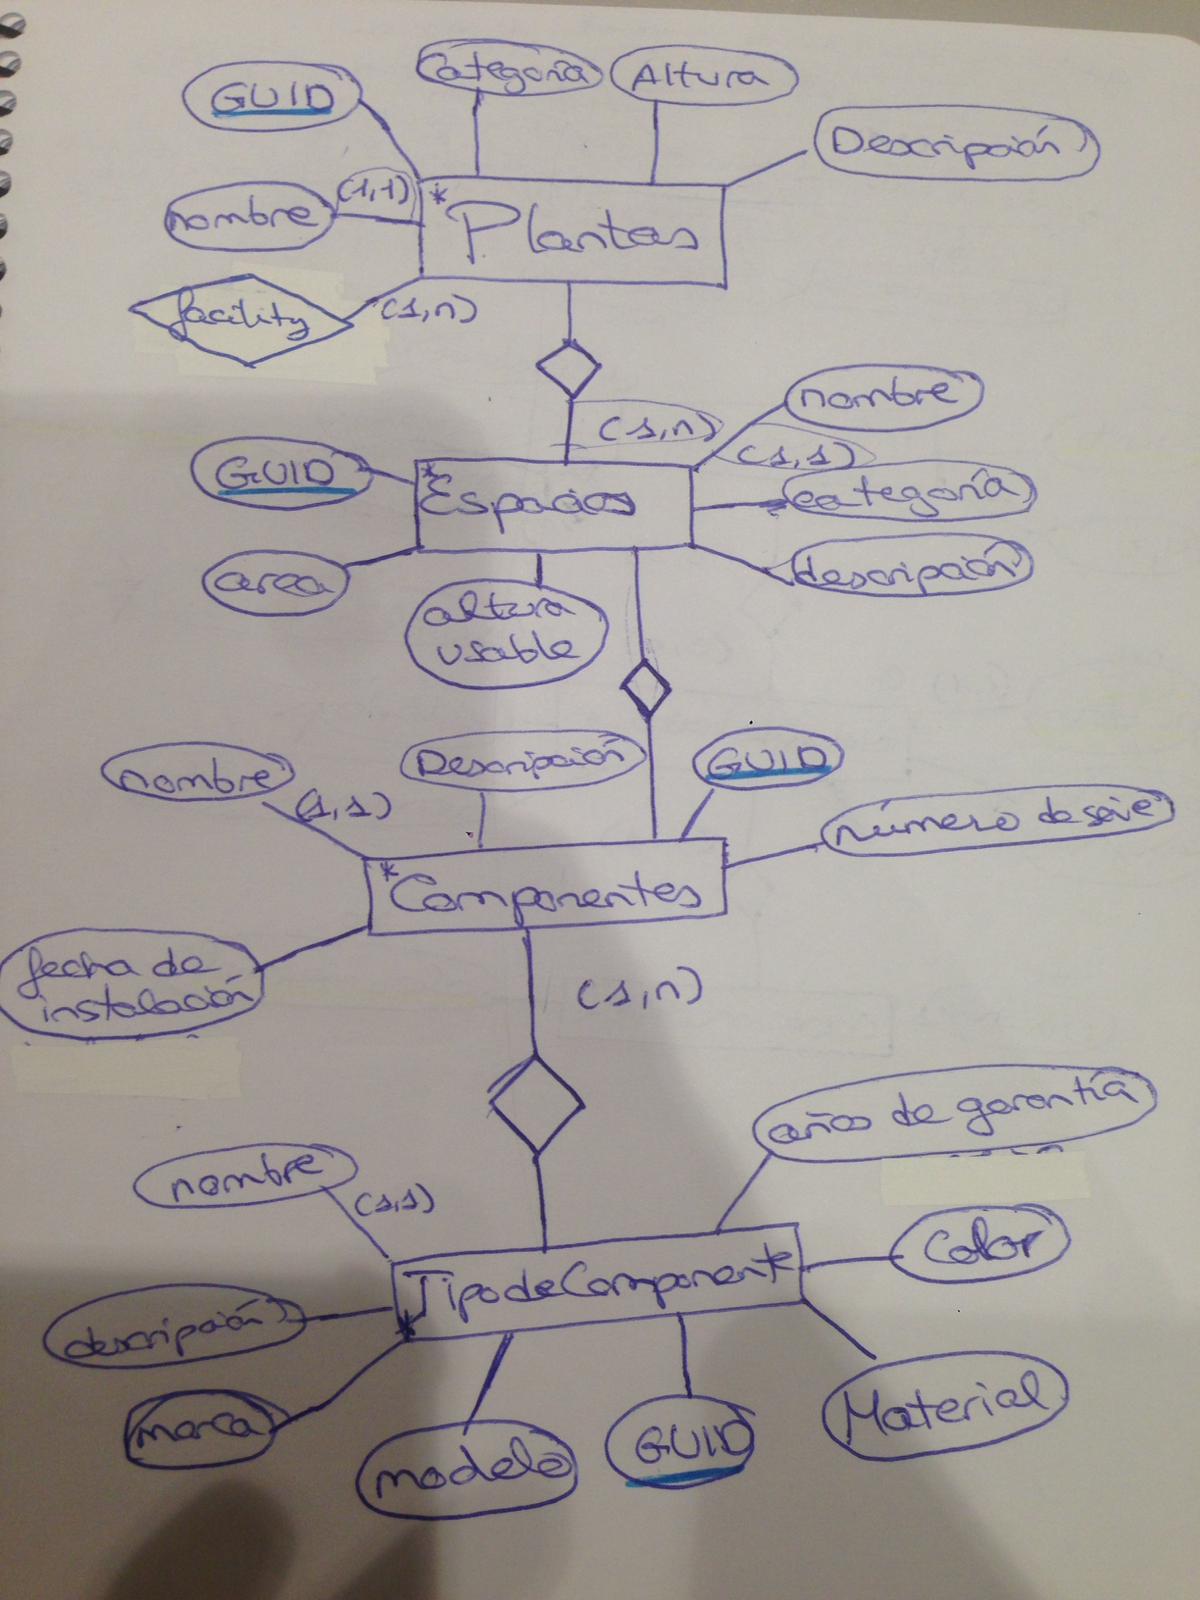 GUID
Categoría
Altura
Descripción
nombre
(1,1)
* Plantas
facility
(1,n)
(1,n)
nombre
(1,1)
GUID
* Espacios
categoría
area
altura
usable
descripción
nombre
(1,1)
Descripción
GUID
número de serie
* Componentes
fecha de
instalación
(1,n)
años de garantía
nombre
(1,1)
Color
Tipo de Componente
*
descripción
marca
modelo
GUID
Material